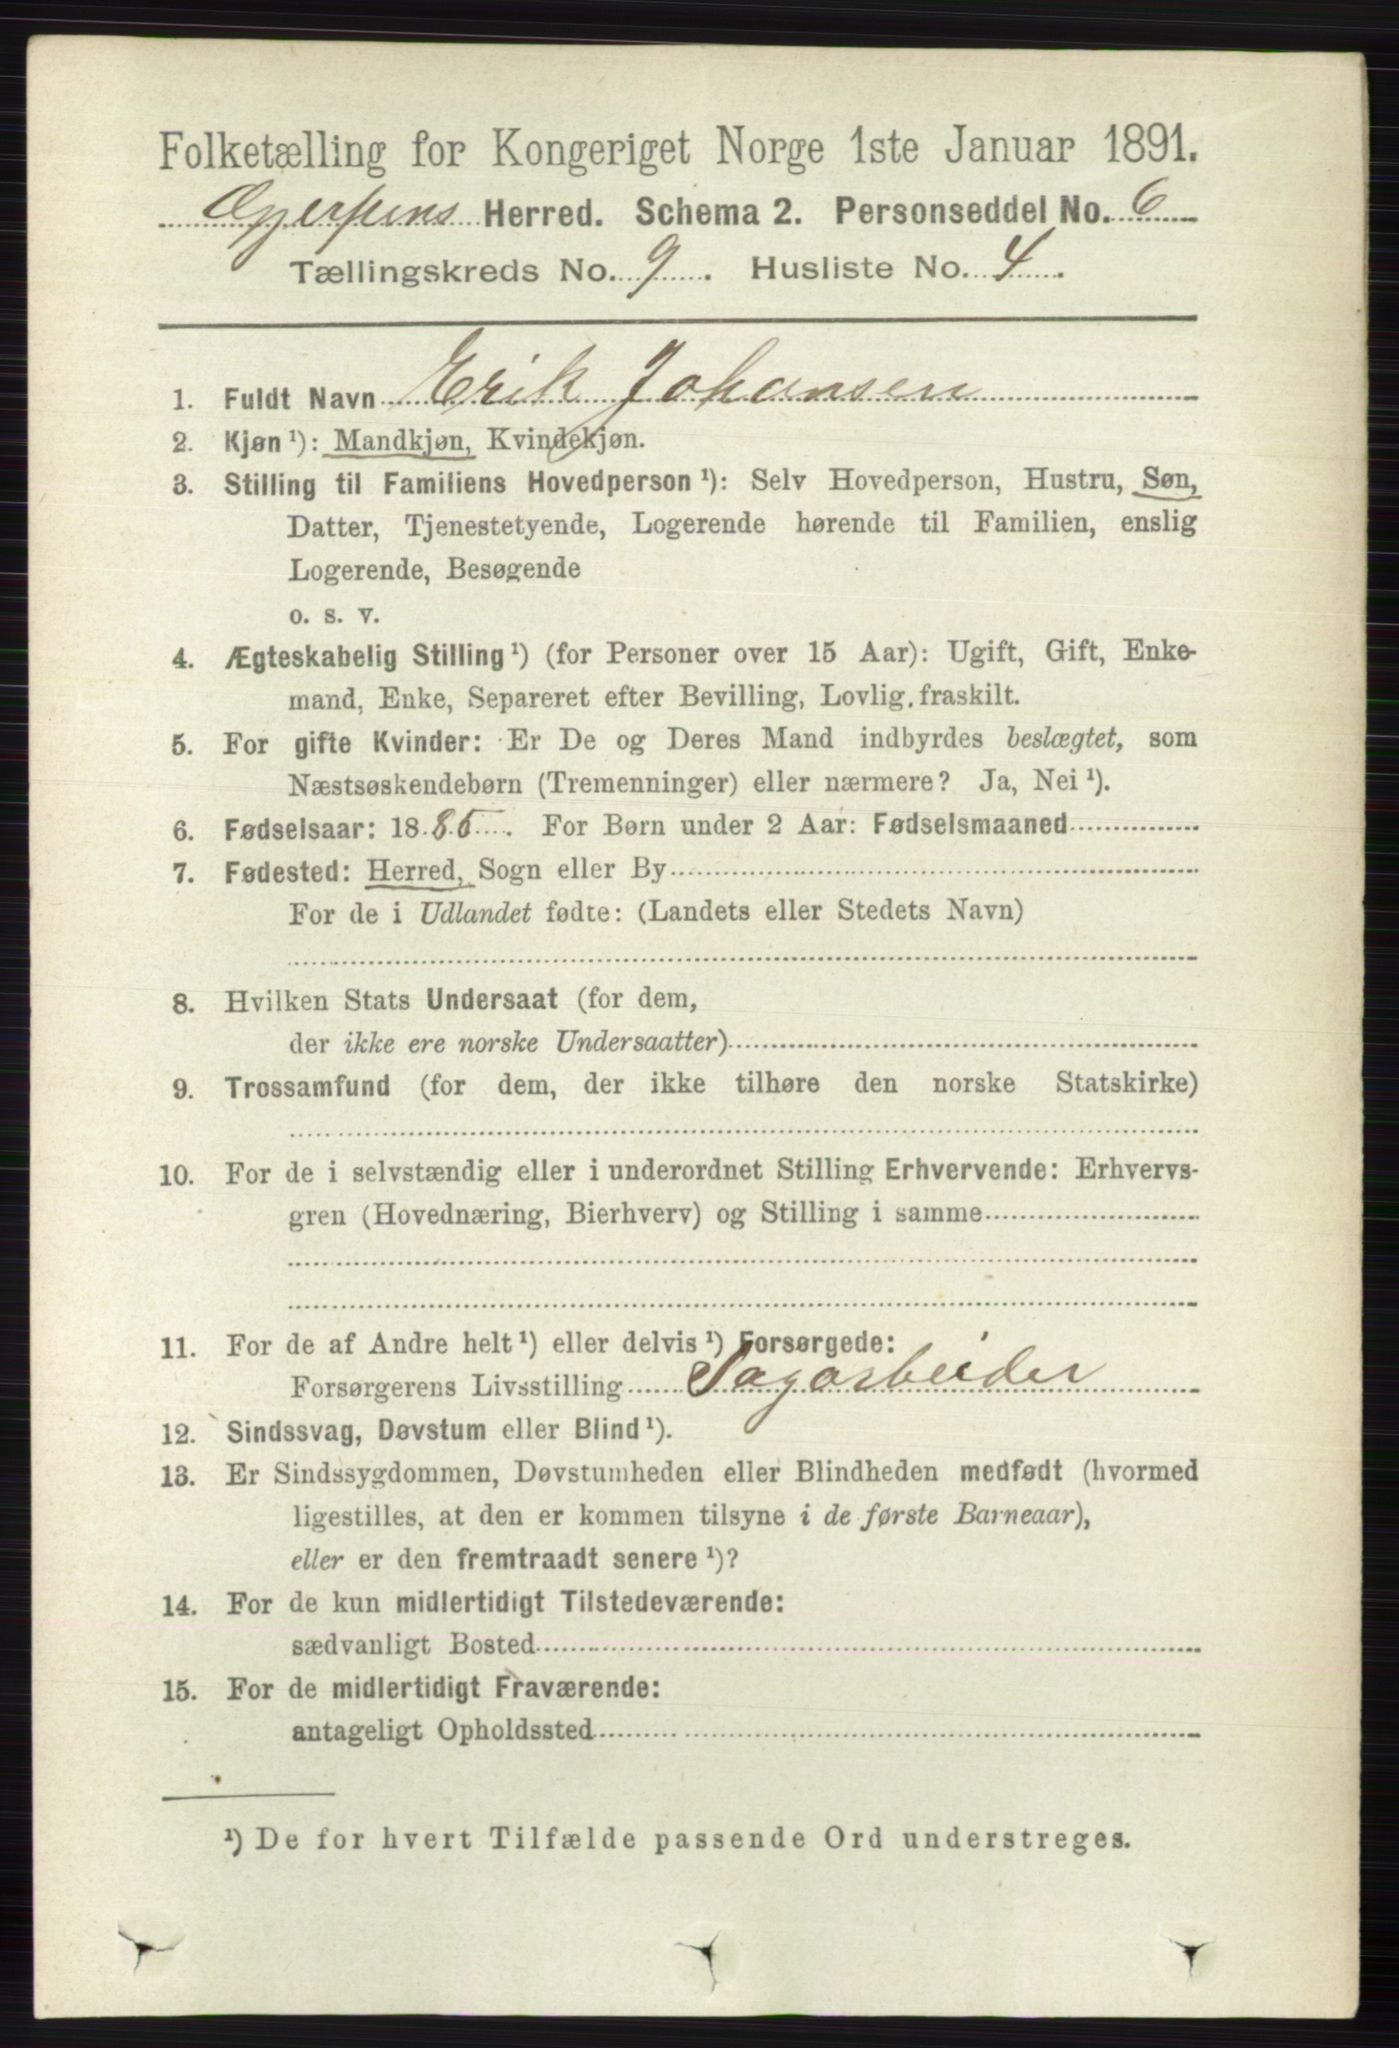 Folketælling for Kongeriget Norge 1ste Januar 1891.
Gjerpens Herred. Schema 2. Personseddel No. 6
Tællingskreds No. 9. Husliste No. 4.
1. Fuldt Navn Erik Johansen
2. Kjøn¹): Mandkjøn, Kvindekjøn.
3. Stilling til Familiens Hovedperson¹): Selv Hovedperson, Hustru, Søn,
Datter, Tjenestetyende, Logerende hørende til Familien, enslig
Logerende, Besøgende
o. s. v.
4. Ægteskabelig Stilling¹) (for Personer over 15 Aar): Ugift, Gift, Enke-
mand, Enke, Separeret efter Bevilling, Lovlig fraskilt.
5. For gifte Kvinder: Er De og Deres Mand indbyrdes beslægtet, som
Næstsøskendebørn (Tremenninger) eller nærmere? Ja, Nei¹).
6. Fødselsaar: 1885. For Børn under 2 Aar: Fødselsmaaned
7. Fødested: Herred, Sogn eller By
For de i Udlandet fødte: (Landets eller Stedets Navn)
8. Hvilken Stats Undersaat (for dem,
der ikke ere norske Undersaatter)
9. Trossamfund (for dem, der ikke tilhøre den norske Statskirke)
10. For de i selvstændig eller i underordnet Stilling Erhvervende: Erhvervs-
gren (Hovednæring, Bierhverv) og Stilling i samme
11. For de af Andre helt¹) eller delvis¹) Forsørgede:
Forsørgerens Livsstilling Sagarbeider
12. Sindssvag, Døvstum eller Blind¹).
13. Er Sindssygdommen, Døvstumheden eller Blindheden medfødt (hvormed
ligestilles, at den er kommen tilsyne i de første Barneaar),
eller er den fremtraadt senere¹)?
14. For de kun midlertidigt Tilstedeværende:
sædvanligt Bosted
15. For de midlertidigt Fraværende:
antageligt Opholdssted
¹) De for hvert Tilfælde passende Ord understreges.